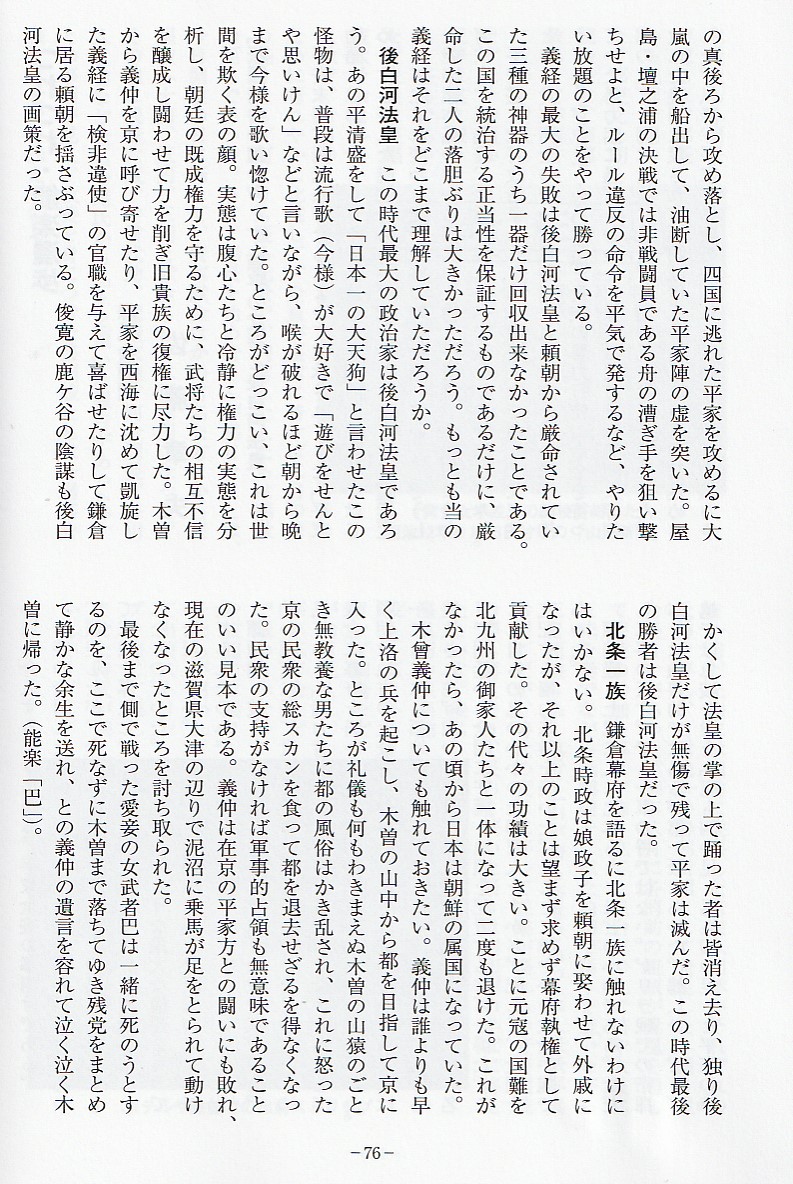 の真後ろから攻め落とし、四国に逃れた平家を攻めるに大
嵐の中を船出して、油断していた平家陣の虚を突いた。屋
島・壇之浦の決戦では非戦闘員である舟の漕ぎ手を狙い撃
ちせよと、ルール違反の命令を平気で発するなど、やりた
い放題のことをやって勝っている。
義経の最大の失敗は後白河法皇と頼朝から厳命されてい
た三種の神器のうち一器だけ回収出来なかったことである。
この国を統治する正当性を保証するものであるだけに、厳
命した二人の落胆ぶりは大きかっただろう。もっとも当の
義経はそれをどこまで理解していただろうか。
後白河法皇　この時代最大の政治家は後白河法皇であろ
う。あの平清盛をして「日本一の大天狗」と言わせたこの
怪物は、普段は流行歌（今様）が大好きで「遊びをせんと
や思いけん」などと言いながら、喉が破れるほど朝から晩
まで今様を歌い惚けていた。ところがどっこい、これは世
間を欺く表の顔。実態は腹心たちと冷静に権力の実態を分
析し、朝廷の既成権力を守るために、武将たちの相互不信
を醸成し闘わせて力を削ぎ旧貴族の復権に尽力した。木曽
から義仲を京に呼び寄せたり、平家を西海に沈めて凱旋し
た義経に「検非違使」の官職を与えて喜ばせたりして鎌倉
に居る頼朝を揺さぶっている。俊寛の鹿ケ谷の陰謀も後白
河法皇の画策だった。
かくして法皇の掌の上で踊った者は皆消え去り、独り後
白河法皇だけが無傷で残って平家は滅んだ。この時代最後
の勝者は後白河法皇だった。
北条一族　鎌倉幕府を語るに北条一族に触れないわけに
はいかない。北条時政は娘政子を頼朝に娶わせて外戚に
なったが、それ以上のことは望まず求めず幕府執権として
貢献した。その代々の功績は大きい。ことに元寇の国難を
北九州の御家人たちと一体になって二度も退けた。これが
なかったら、あの頃から日本は朝鮮の属国になっていた。
木曾義仲についても触れておきたい。義仲は誰よりも早
く上洛の兵を起こし、木曽の山中から都を目指して京に
入った。ところが礼儀も何もわきまえぬ木曽の山猿のごと
き無教養な男たちに都の風俗はかき乱され、これに怒った
京の民衆の総スカンを食って都を退去せざるを得なくなっ
た。民衆の支持がなければ軍事的占領も無意味であること
のいい見本である。義仲は在京の平家方との闘いにも敗れ、
現在の滋賀県大津の辺りで泥沼に乗馬が足をとられて動け
なくなったところを討ち取られた。
最後まで側で戦った愛妾の女武者巴は一緒に死のうとす
るのを、ここで死なずに木曽まで落ちてゆき残党をまとめ
て静かな余生を送れ、との義仲の遺言を容れて泣く泣く木
曽に帰った。（能楽「巴」）。
－76－